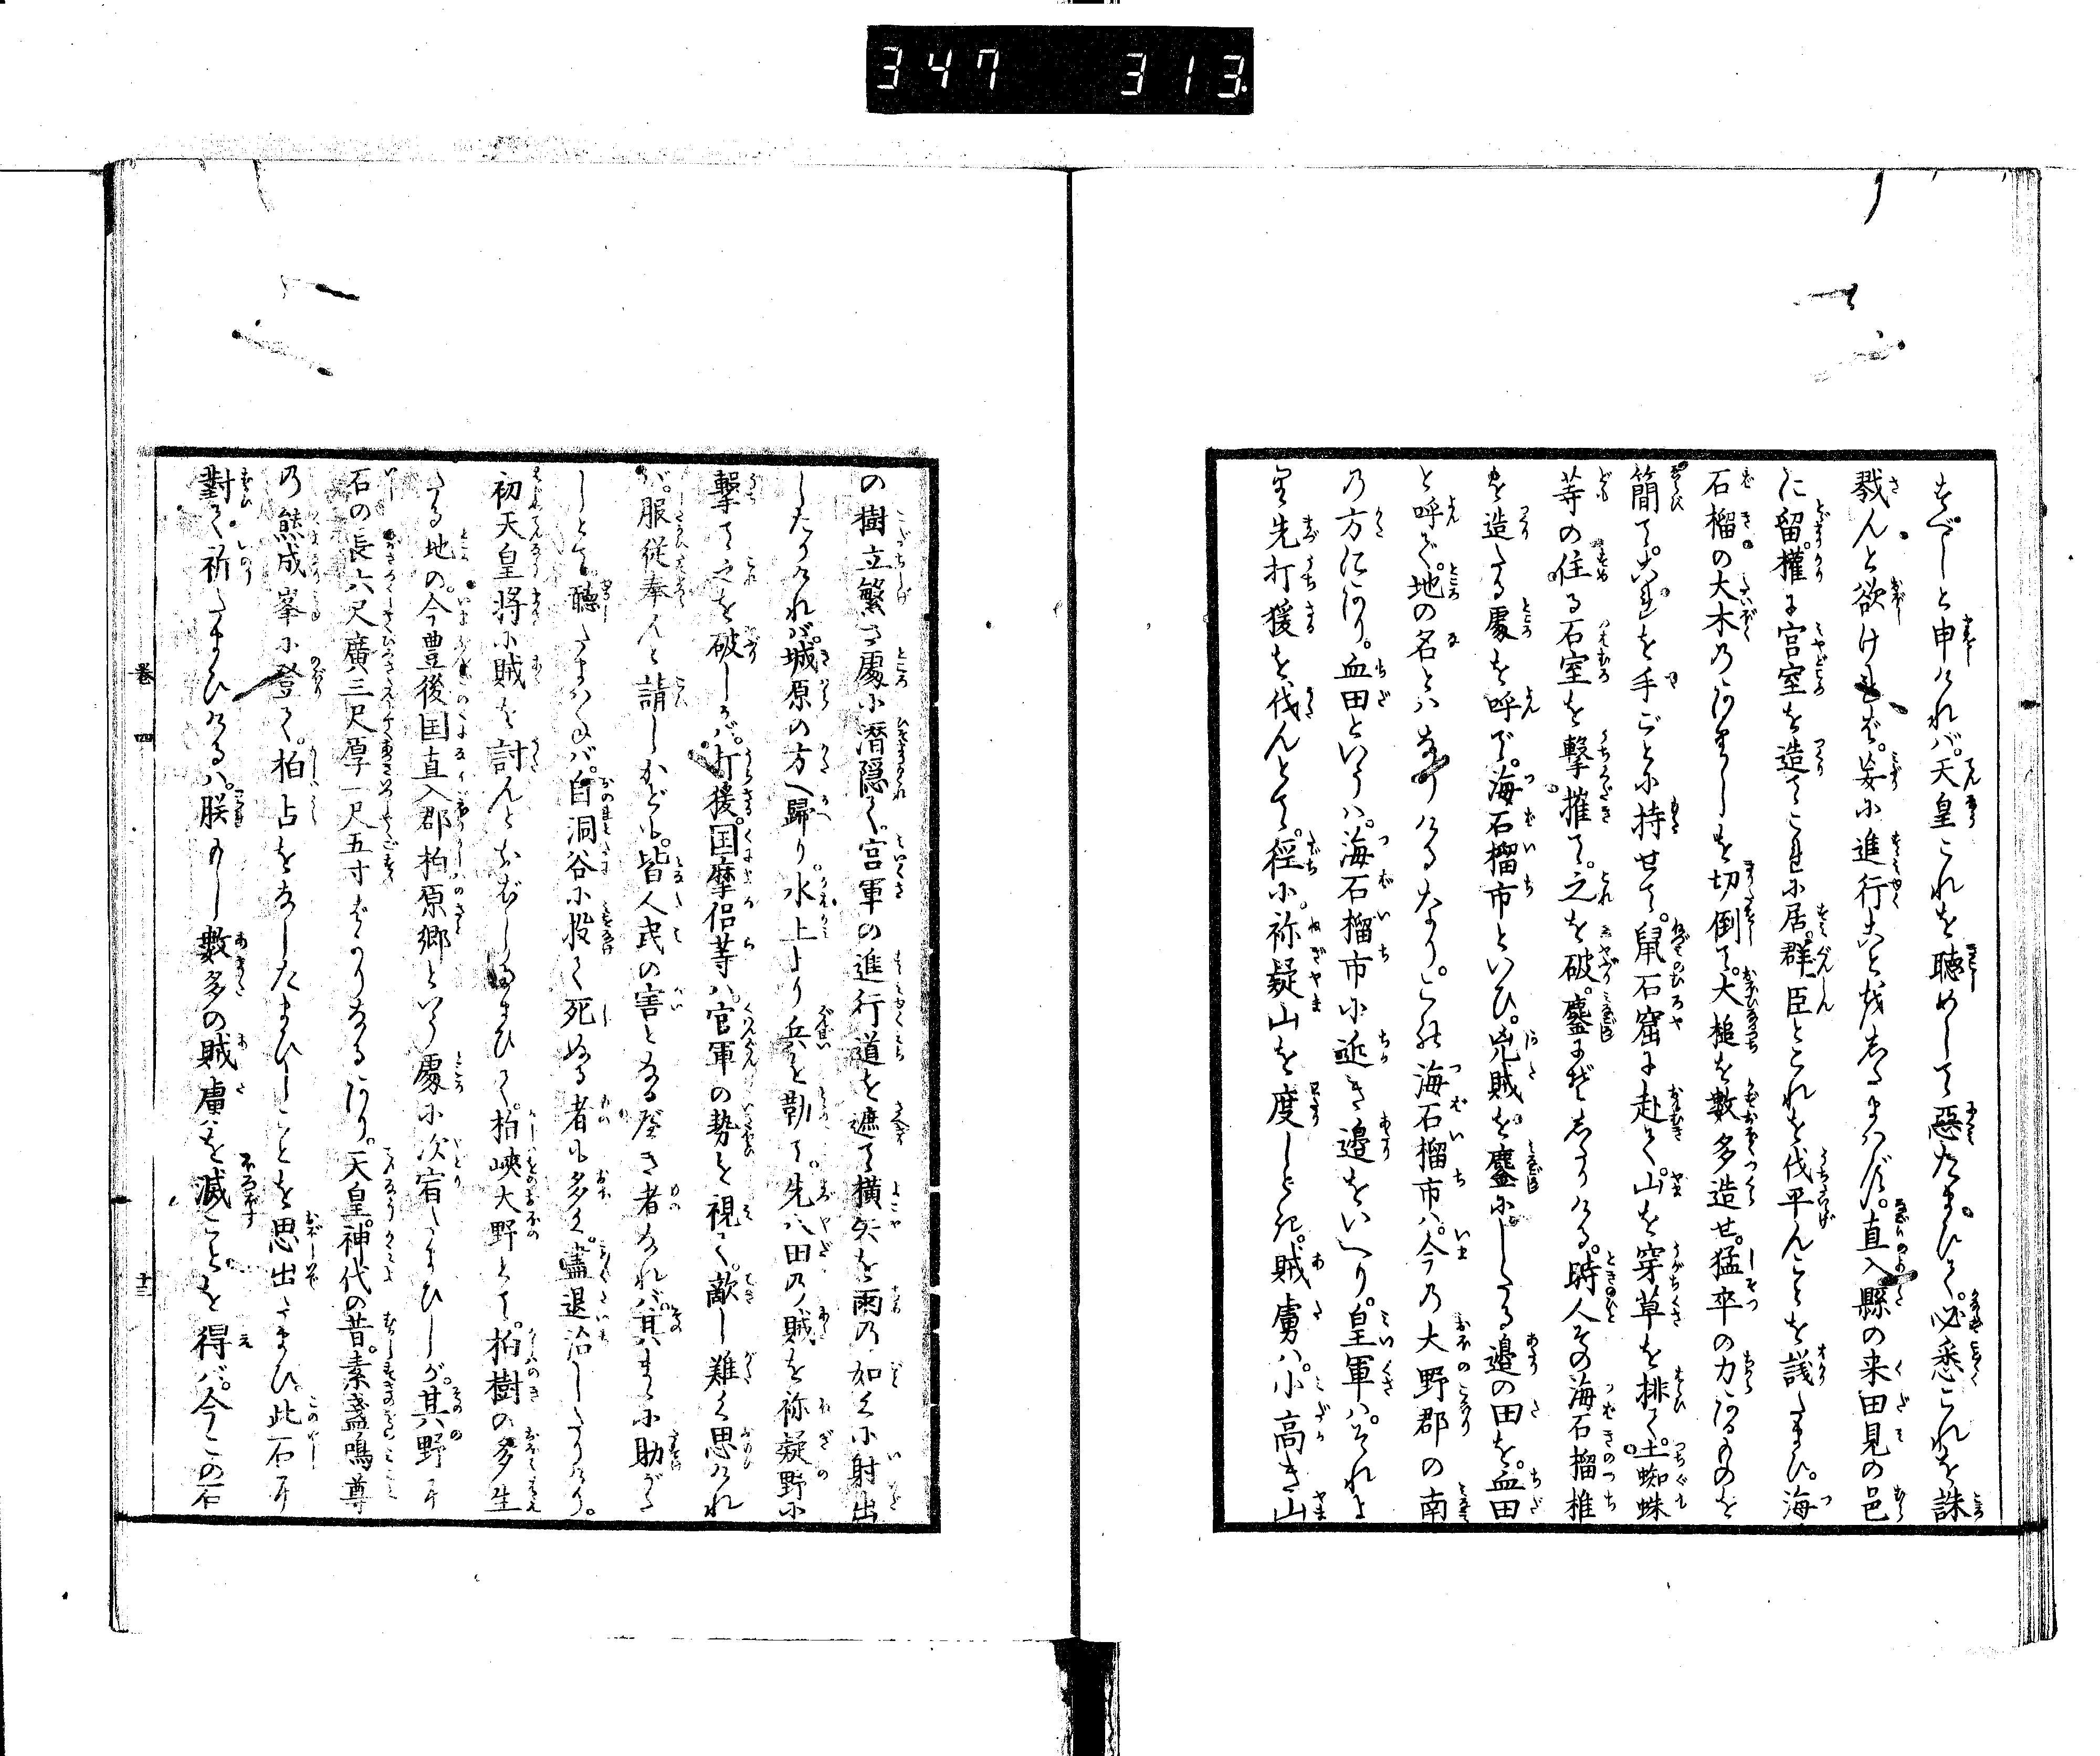 347 313
をべしと申ければ。天皇これを聴めして惡たまひて。必悉これを誅
戮んと欲けれど。妄に進行ことを得たまはず。直入縣の来田見の邑
に留。權に宮室を造てこれに居。群臣とこれを伐平んことを議たまひ。海
石榴の大木のありしを切倒て。大槌を數多造せ。猛卒の力あるものを
簡て。これを手ごとに持せて。鼠石窟に赴て。山を穿草を排て。土蜘蛛
等の住る石室を撃摧て。之を破。鏖にぞしたりける。時人その海石榴椎
を造たる處を呼て。海石榴市といひ。兇賊を。鏖にしたる邊の田を。血田
と呼て。地の名とハなりけるなり。この海石榴市ハ。今の大野郡の南
の方にあり。血田といふハ。海石榴市に近き邊をいへり。皇軍ハ。それよ
り先打猨を伐んとて。徑に。祢疑山を度しとき。賊虜ハ。小高き山
の樹立繁き處に潜隠て。官軍の進行道を遮て横矢を雨の如くに射出
したりければ。城原の方へ歸り。水上より兵を勒て。先八田の賊を祢疑野に
撃て之を破しかば。打猨。国摩侶等ハ。官軍の勢を視て。敵し難く思けれ
バ。服従奉んと請しかども。皆人民の害となる癸き者なれバ。其まゝに助がた
しとて。聴たまはねバ。自洞谷に投て死ぬる者も多く。盡退治したりけり。
初天皇將に賊を討んとおぼしたまひて。柏峡大野とて。柏樹の多生
たる地の。今豊後国直入郡柏原郷といふ處に次宿たまひしが。其野に
石の長六尺廣三尺厚一尺五寸ばかりなるあり。天皇。神代の昔。素盞嗚尊
の熊成峯に登て。柏占をなしたまひしことを思出たまひ。此石に
對て祈たまひけるハ。朕もし數多の賊虜を滅ことを得バ。今この石
巻四
十三